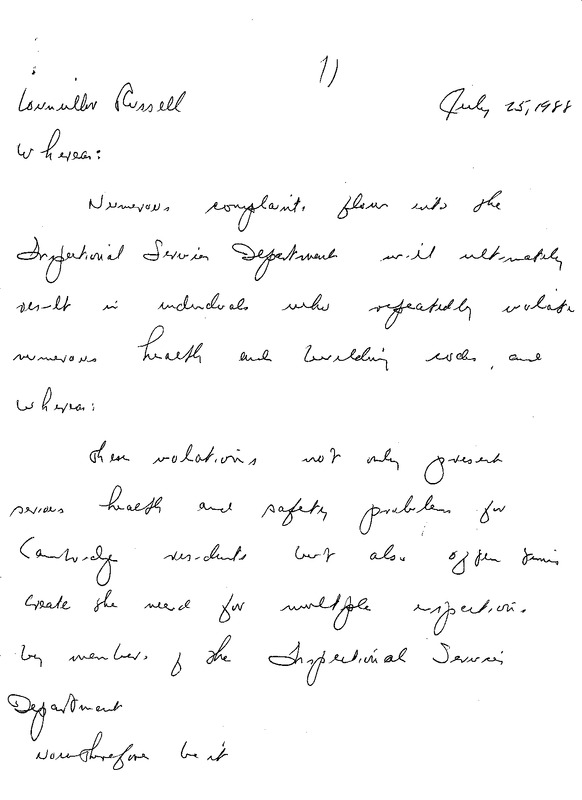 1)
Councillor Russell July 25, 1988
Whereas:
Numerous complaints flow into the
Inspectional Services Department will ultimately
result in individuals who repeatedly violate
numerous health and building codes, and
Whereas:
these violations not only present
serious health and safety problems for
Cambridge residents but also often times
create the need for multiple inspections
by members of the Inspectional Services
Department
Now therefore be it